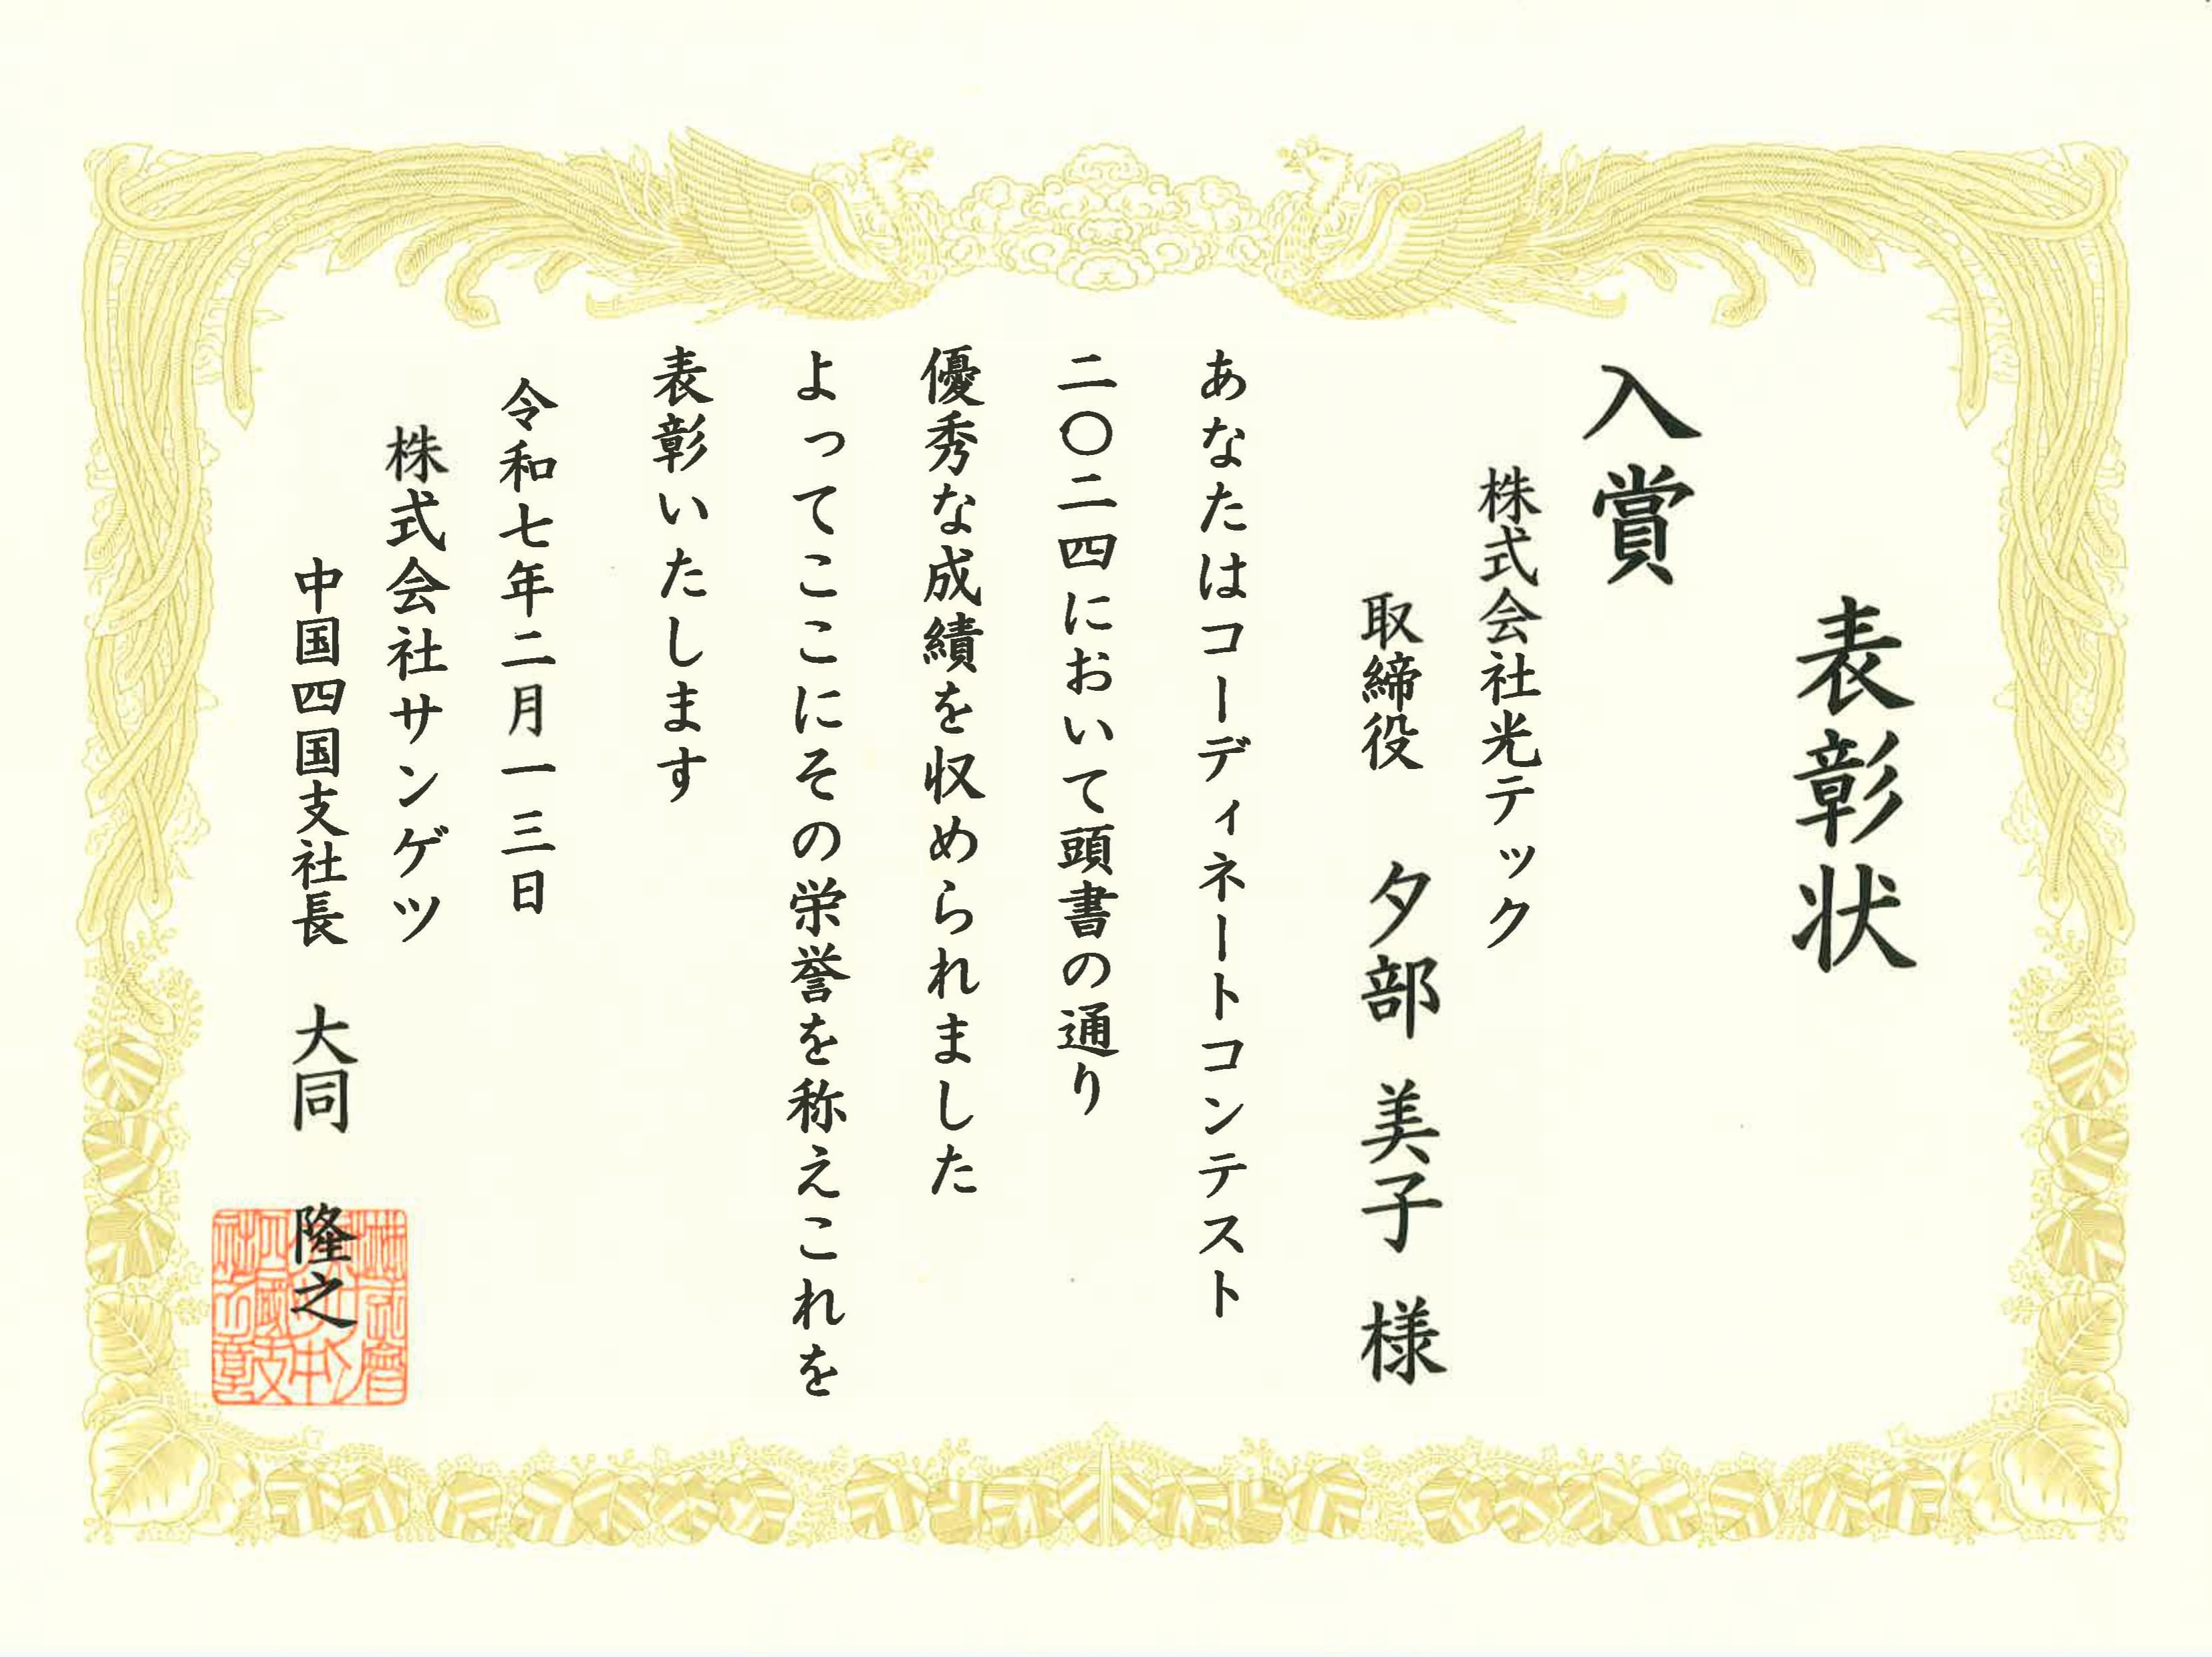 表彰状
入賞
株式会社光テック
取締役 夕部 美子 様
あなたはコーディネートコンテスト
二〇二四において頭書の通り
優秀な成績を収められました
よってここにその栄誉を称えこれを
表彰いたします
令和七年二月一三日
株式会社サンゲツ
中国四国支社長 大同 隆之